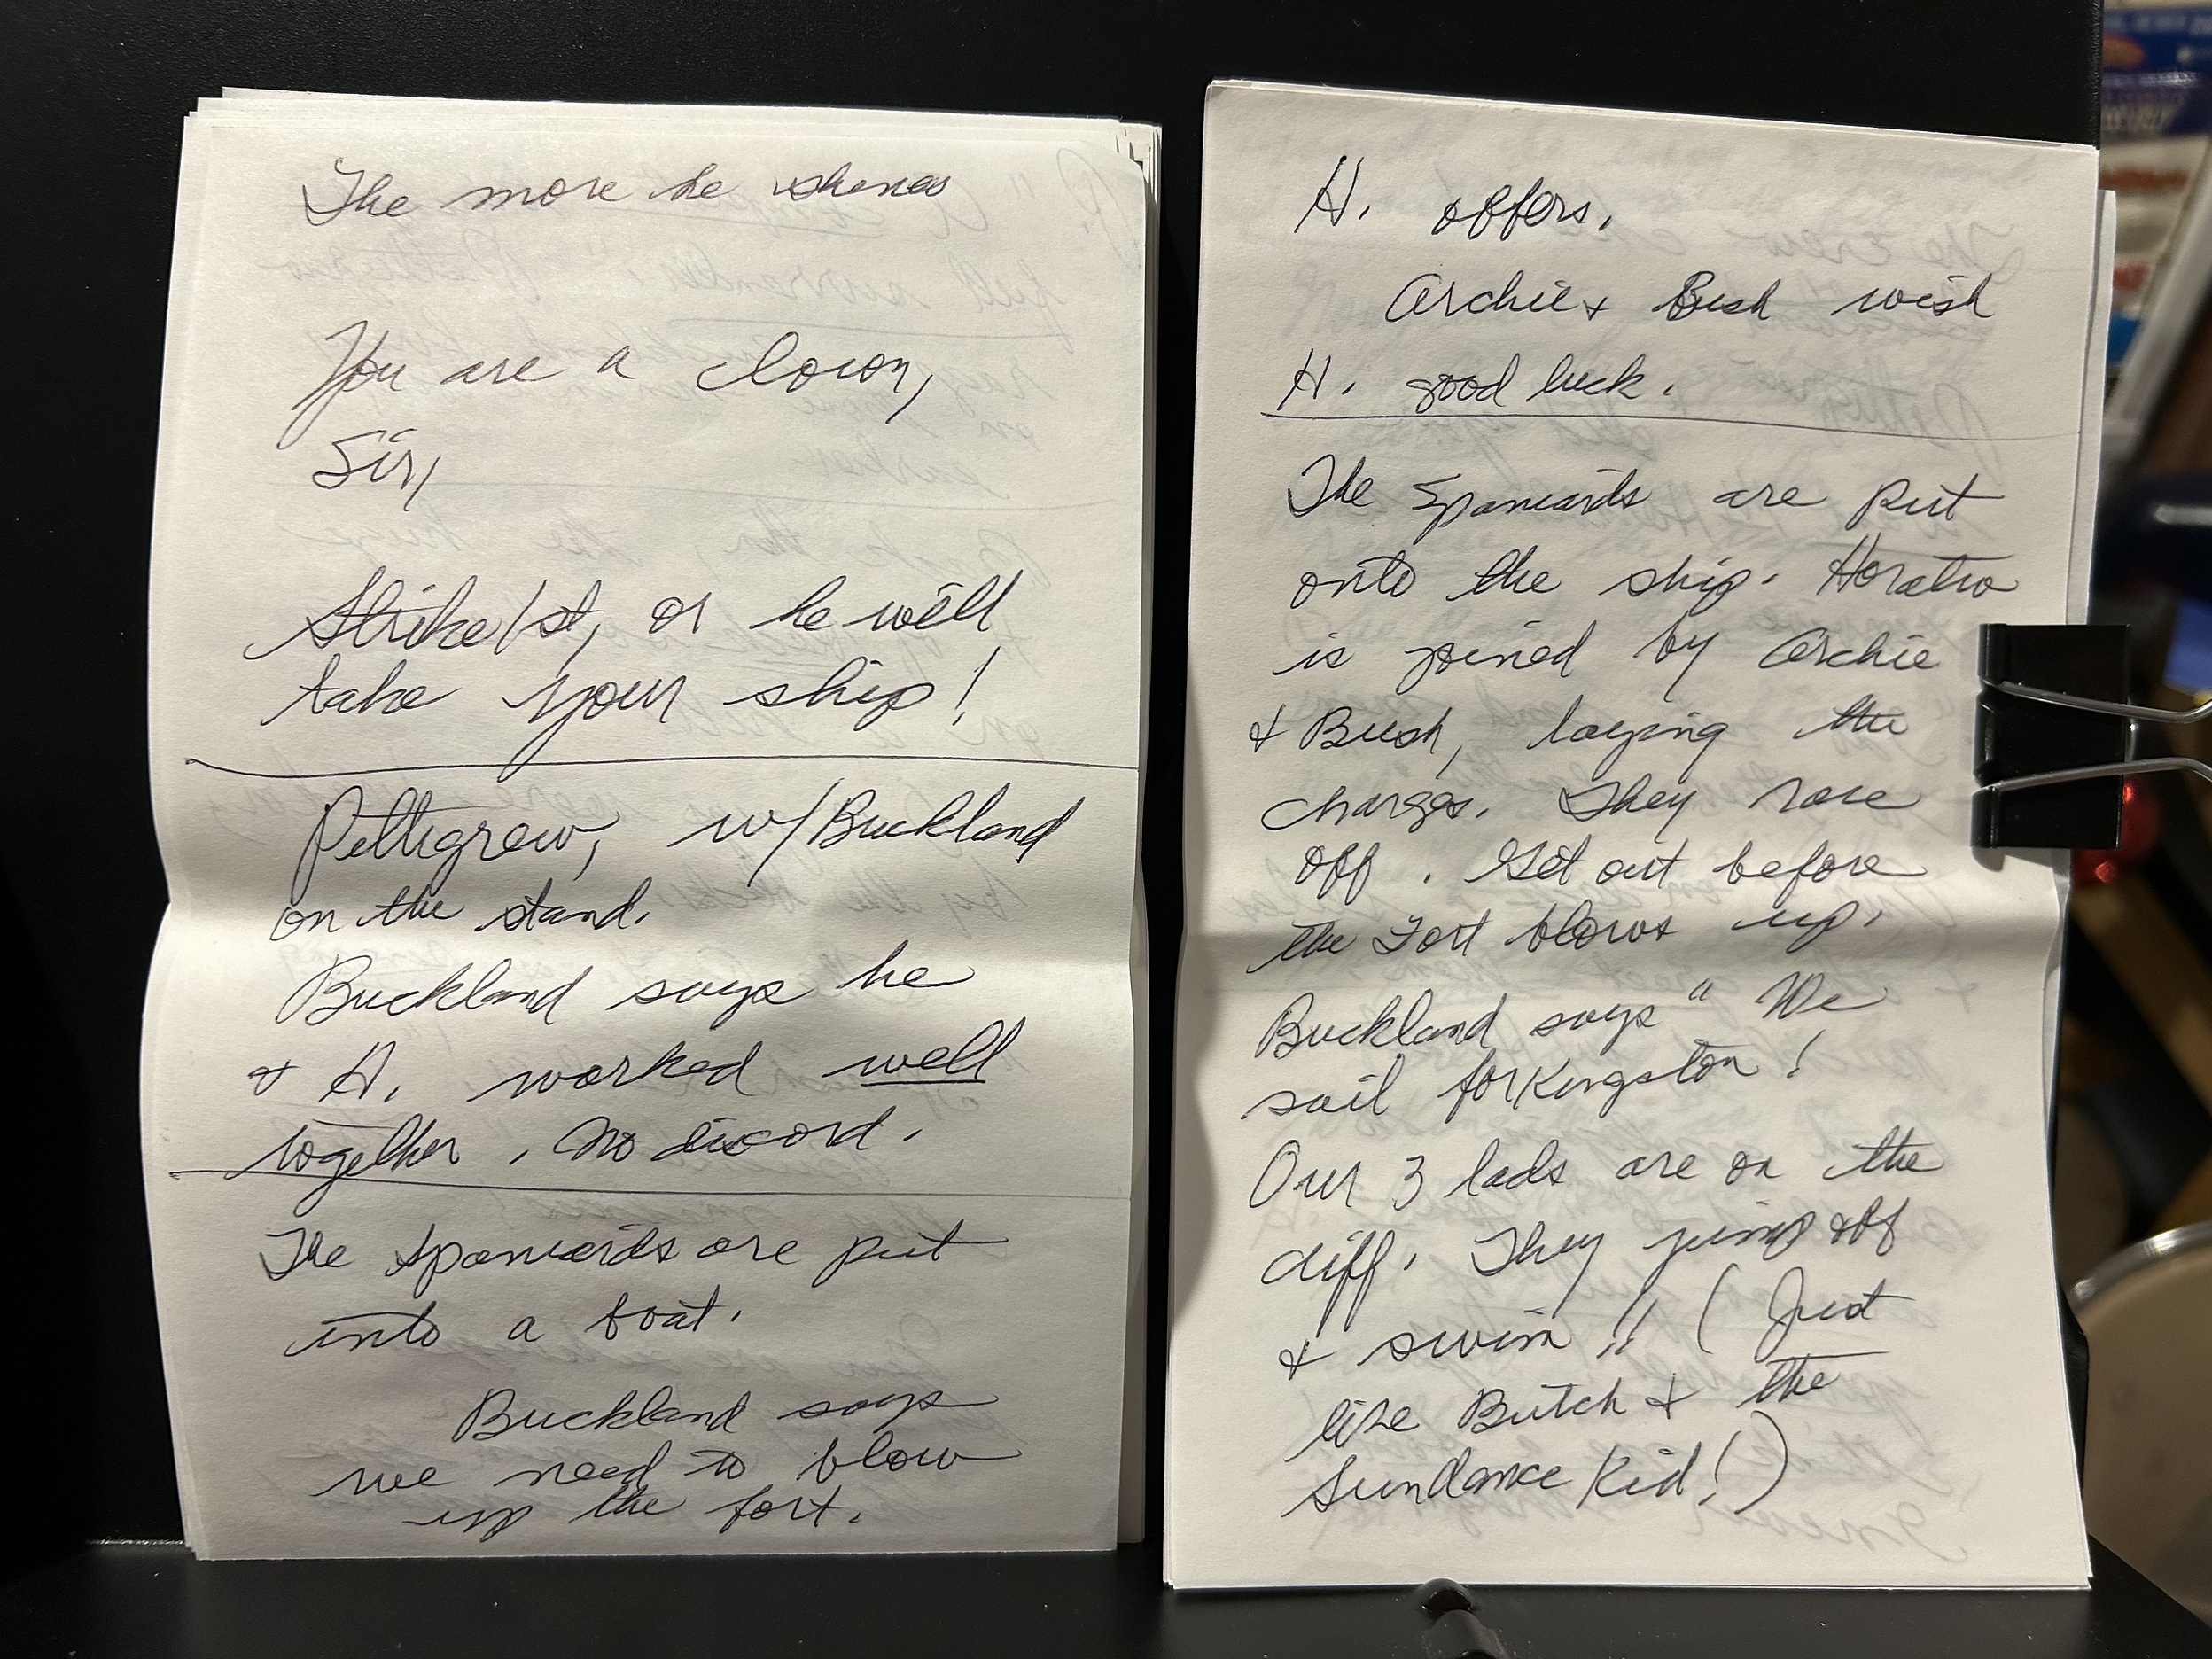 The more he shines
You are a clown,
Sir,
Strike 1st, or he will
take your ship!
Pettigrew, w/Buckland
on the stand.
Buckland says he
& H. worked well
together. No discord.
The Spaniards are put
into a boat.
Buckland says
we need to blow
up the fort.
H. offers.
Archie & Bush wish
H. good luck.
The Spaniards are put
onto the ship. Horatio
is joined by Archie
& Bush, laying the
charges. They race
off. Get out before
the Fort blows up.
Buckland says "We
sail for Kingston!
Our 3 lads are on the
cliff. They jump off
& swim!! (Just
like Butch & the
Sundance Kid!)